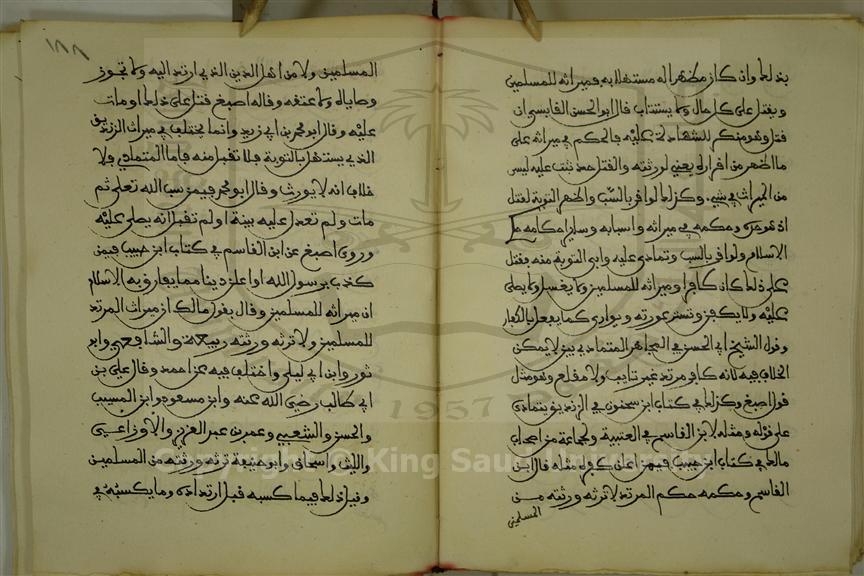 ١٨٨
بذلك وان كان مظهرا له مستهلا به فميراثه للمسلمين
ويقتل على كل حال ولا يستتاب قال ابو الحسن القابسي ان
قتل وهو منكر للشهادة عليه فالحكم في ميراثه على
ما اظهر من اقراره يعني لورثته والقتل حد ثبت عليه ليس
من الميراث في شيء وكذلك لو اقر بالسب واظهر التوبة لقتل
اذ هو حده وحكمه في ميراثه وسائر احكامه حكم
الاسلام ولو اقر بالسب وتمادى عليه وابى التوبة منه فقتل
على ذلك كان كافرا وميراثه للمسلمين ولا يغسل ولا يصلى
عليه ولا يكفن وتستر عورته ويوارى كما يفعل بالكفار
وقول الشيخ ابي الحسن في المجاهر المتمادي بين لا يمكن
الخلاف فيه لانه كافر مرتد غير تايب ولا مقلع وهو مثل
قول اصبغ وكذلك في كتاب ابن سحنون في الزنديق يتمادى
على قوله ومثله لابن القاسم في العتبية ولجماعة من اصحاب
مالك في كتاب ابن حبيب فيمن اعلن كفره مثله قال ابن
القاسم وحكمه حكم المرتد لا ترثه ورثته من
المسلمين
المسلمين ولا من اهل الدين الذي ارتد اليه ولا تجوز
وصاياه ولا عتقه وقاله اصبغ قتل على ذلك او مات
عليه وقال ابو محمد بن ابي زيد وانما يختلف في ميراث الزنديق
الذي يستهل بالتوبة فلا تقبل منه فاما المتمادي فلا
خلاف انه لا يورث وقال ابو محمد فيمن سب الله تعلى ثم
مات ولم تعدل عليه بينة او لم تقبل انه يصلى عليه
وروى اصبغ عن ابن القاسم في كتاب ابن حبيب فيمن
كذب برسول الله او اعلن دينا مما يفارق به الاسلام
ان ميراثه للمسلمين وقال بقول مالك ان ميراث المرتد
للمسلمين ولا ترثه ورثته ربيعة والشافعي وابو
ثور وابن ابي ليلى واختلف فيه عن احمد وقال علي بن
ابي طالب رضي الله عنه وابن مسعود وابن المسيب
والحسن والشعبي وعمر بن عبد العزيز والاوزاعي
والليث واسحاق وابو حنيفة ترثه ورثته من المسلمين
وقيل ذلك فيما كسبه قبل ارتداده وما يكسبه في
Copyright © King Saud University
1957